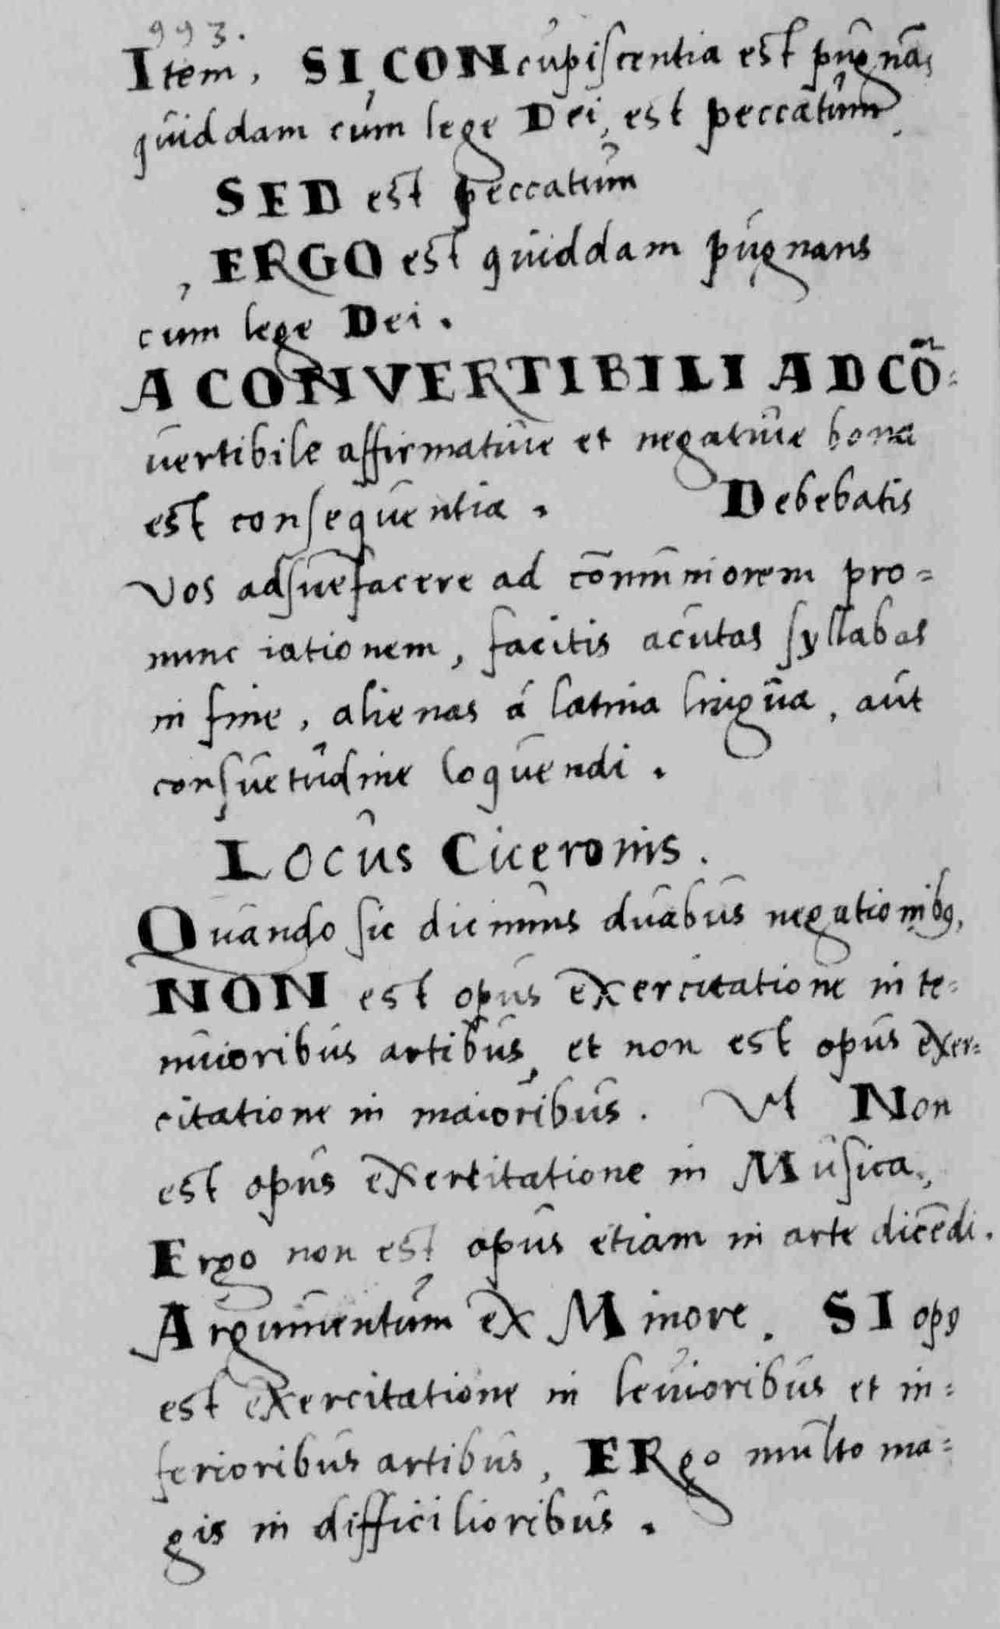 993.
Item, SI CONcupiscentia est pugnās
quiddam cum lege Dei, est peccatum,
SED est peccatum
ERGO est quiddam pugnans
cum lege Dei.
A CONVERTIBILI AD CŌ=
vertibile affirmative et negative bona
est consequentia. Debebatis
Vos adsuefacere ad cōmuniorem pro=
nunciationem, facitis acutas syllabas
in fine, alienas á latina lingua, aut
consuetudine loquendi.
Locus Ciceronis.
Quando sic dicimus duabus negationibꝰ,
NON est opus exercitatione in te=
nuioribus artibus, et non est opus exer=
citatione in maioribus. Ut Non
est opus exercitatione in Musica,
Ergo non est opus etiam in arte dicēdi.
Argumentum ex Minore. SI opꝰ
est exercitatione in levioribus et in=
ferioribus artibus, ERgo multo ma=
gis in difficilioribus.